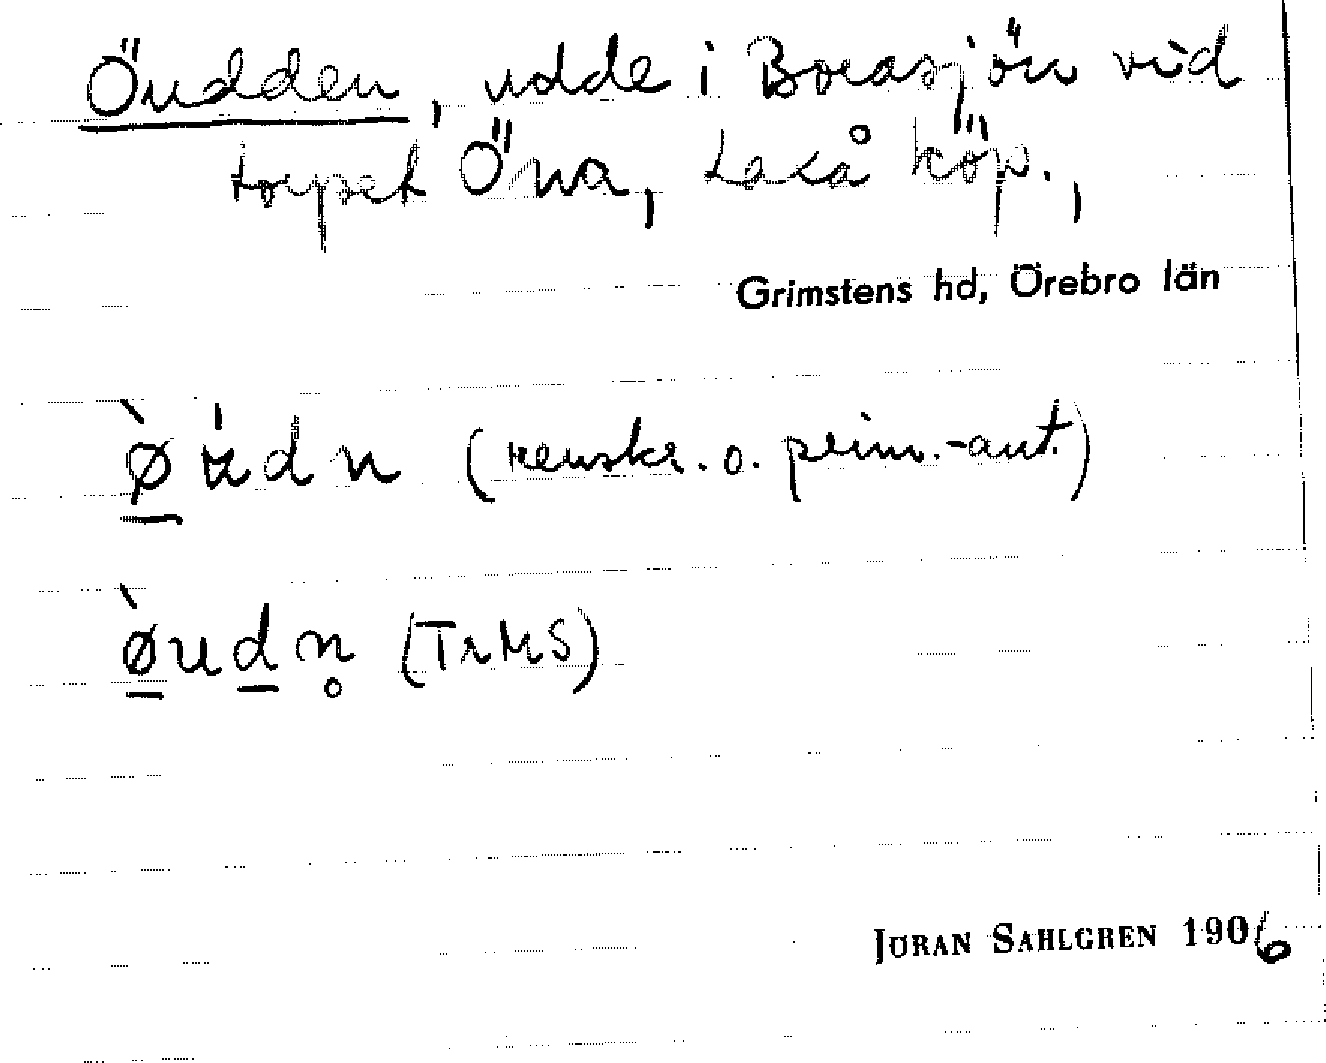 Öudden, udde i Borasjön vid
torpet Öna, Laxå köp.,
Grimstens hd, Örebro län
ø̱̀ u̍dn (renskr. o. prim.-aut.)
ø̱̀uḏn̥ (TrMS)
JÖRAN SAHLGREN 1906